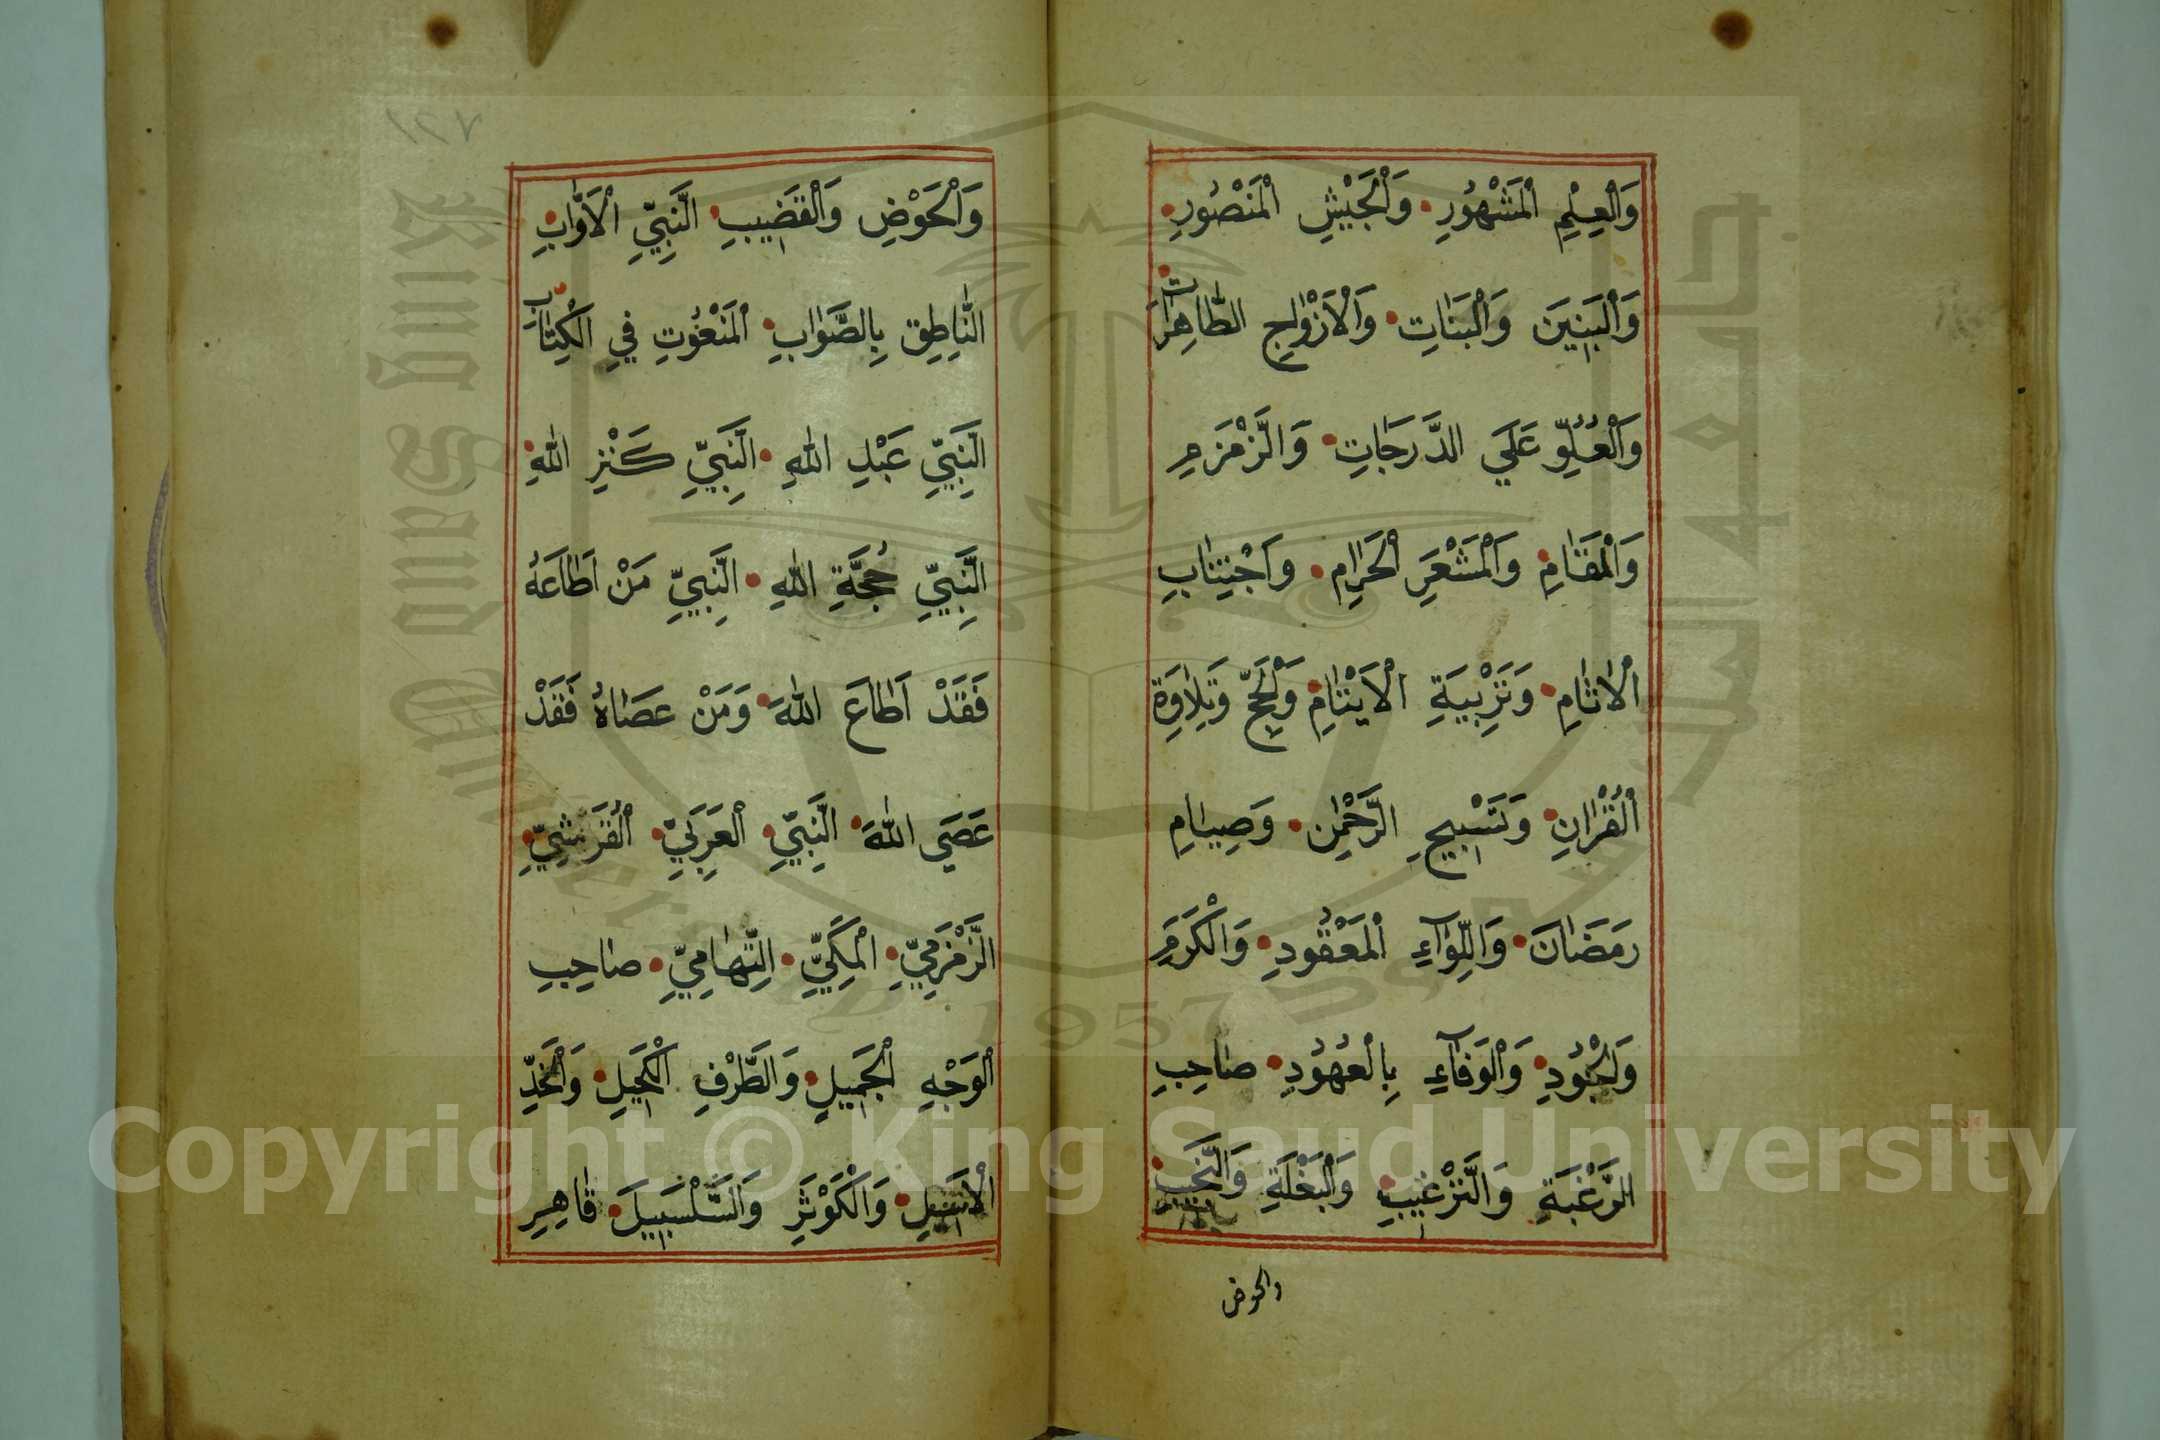 وَالْعِلْمِ الْمَشْهُورِ وَالْجَيْشِ الْمَنْصُورِ
وَالْبَنِينَ وَالْبَنَاتِ وَالْاَزْوَاجِ الطَّاهِرَاتِ
وَالْعُلُوِّ عَلَي الدَّرَجَاتِ وَالزَّمْزَمِ
وَالْمَقَامِ وَالْمَشْعَرِ الْحَرَامِ وَاجْتِنَابِ
الْاٰثَامِ وَتَرْبِيَةِ الْاَيْتَامِ وَالْحَجِّ وَتِلَاوَةِ
الْقُرْاٰنِ وَتَسْبِيحِ الرَّحْمٰنِ وَصِيَامِ
رَمَضَانَ وَاللِّوَآءِ الْمَعْقُودِ وَالْكَرَمِ
وَالْجُودِ وَالْوَفَآءِ بِالْعُهُودِ صَاحِبِ
الرَّغْبَةِ وَالتَّرْغِيبِ وَالْبَغْلَةِ وَالنَّجِيبِ
والحوض
١٢٧
وَالْحَوْضِ وَالْقَضِيبِ النَّبِيِّ الْاَوَّابِ
النَّاطِقِ بِالصَّوَابِ الْمَنْعُوتِ فِي الْكِتَابِ
النَّبِيِّ عَبْدِ اللّٰهِ النَّبِيِّ كَنْزِ اللّٰهِ
النَّبِيِّ حُجَّةِ اللّٰهِ النَّبِيِّ مَنْ اَطَاعَهُ
فَقَدْ اَطَاعَ اللّٰهَ وَمَنْ عَصَاهُ فَقَدْ
عَصَي اللّٰهَ النَّبِيِّ الْعَرَبِيِّ الْقُرَشِيِّ
الزَّمْزَمِيِّ الْمَكِّيِّ التِّهَامِيِّ صَاحِبِ
الْوَجْهِ الْجَمِيلِ وَالطَّرْفِ الْكَحِيلِ وَالْخَدِّ
الْاَسِيلِ وَالْكَوْثَرِ وَالسَّلْسَبِيلَ قَاهِرِ
King Saud University
جامعة الملك سعود
1957
Copyright © King Saud University